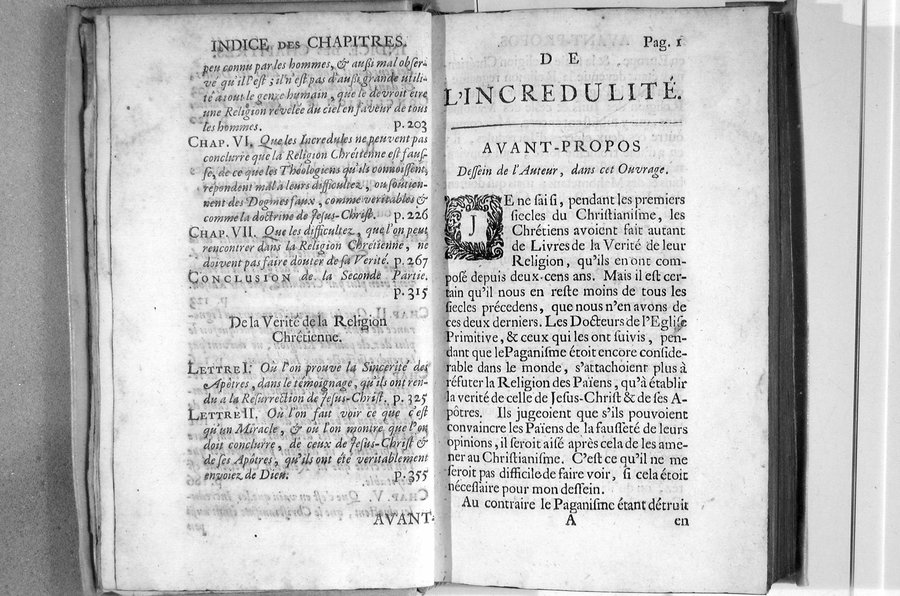 INDICE DES CHAPITRES.
peu connu par les hommes, & auſſi mal obſer-
vé qu'il l'eſt ; il n'eſt pas d'auſſi grande utili-
té à tout le genre humain, que le devroit être
une Religion révelée du ciel en faveur de tous
les hommes. p. 203
CHAP. VI. Que les Incredules ne peuvent pas
conclurre que la Religion Chrétienne eſt fauſ-
ſe, de ce que les Théologiens qu'ils connoiſſent,
répondent mal à leurs difficultez, ou ſoûtien-
nent des Dogmes faux, comme veritables &
comme la doctrine de Jeſus-Chriſt. p. 226
CHAP. VII. Que les difficultez, que l'on peut
rencontrer dans la Religion Chrétienne, ne
doivent pas faire douter de ſa Verité. p. 267
CONCLUSION de la Seconde Partie.
p. 315
De la Verité de la Religion
Chrétienne.
LETTRE I. Où l'on prouve la Sincerité des
Apôtres, dans le témoignage, qu'ils ont ren-
du a la Reſurrection de Jeſus-Chriſt. p. 325
LETTRE II. Où l'on fait voir ce que c'eſt
qu'un Miracle, & où l'on montre que l'on
doit conclurre, de ceux de Jeſus-Chriſt &
de ſes Apôtres, qu'ils ont été veritablement
envoiez de Dieu. p. 355
AVANT-
Pag. 1
DE
L'INCREDULITÉ.
AVANT-PROPOS
Deſſein de l'Auteur, dans cet Ouvrage.
JE ne ſai ſi, pendant les premiers
ſiecles du Chriſtianiſme, les
Chrétiens avoient fait autant
de Livres de la Verité de leur
Religion, qu'ils en ont com-
poſé depuis deux-cens ans. Mais il eſt cer-
tain qu'il nous en reſte moins de tous les
ſiecles précedens, que nous n'en avons de
ces deux derniers. Les Docteurs de l'Egliſe
Primitive, & ceux qui les ont ſuivis, pen-
dant que le Paganiſme étoit encore conſide-
rable dans le monde, s'attachoient plus à
réfuter la Religion des Païens, qu'à établir
la verité de celle de Jeſus-Chriſt & de ſes A-
pôtres. Ils jugeoient que s'ils pouvoient
convaincre les Païens de la fauſſeté de leurs
opinions, il ſeroit aiſé après cela de les ame-
ner au Chriſtianiſme. C'eſt ce qu'il ne me
ſeroit pas difficile de faire voir, ſi cela étoit
néceſſaire pour mon deſſein.
Au contraire le Paganiſme étant détruit
A en